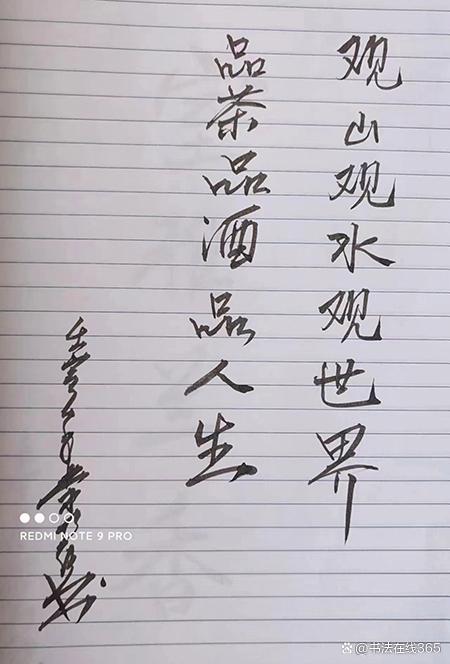 观山观水观世界
品茶品酒品人生
REDMI NOTE 9 PRO
@书法在线365